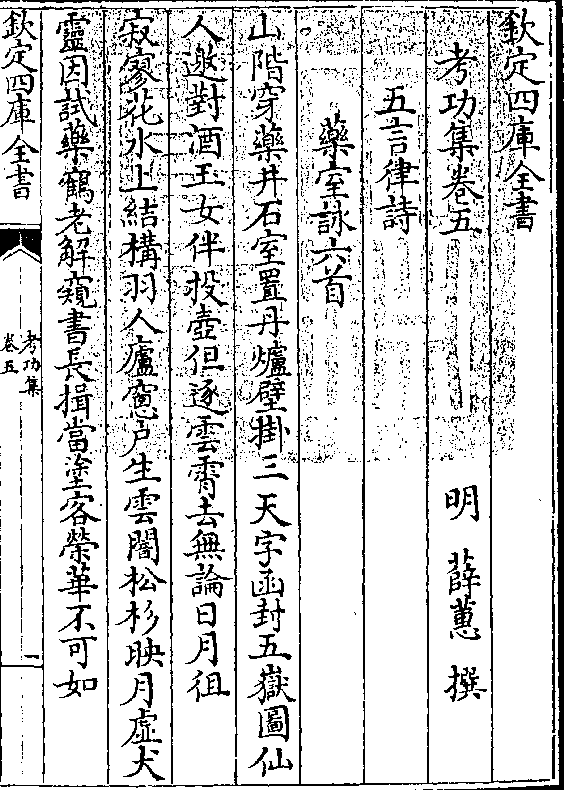 欽定四庫全書
考功集卷五
明 薛蕙 撰
五言律詩
藥室詠六首
山階穿藥井石室置丹爐壁掛三天字函封五嶽圖仙
人邀對酒玉女伴投壺但逐雲霄去無論日月徂
寂寥花水上結構羽人廬窓戶生雲闇松杉映月虛犬
靈因試藥鶴老解窺書長揖當塗客榮華不可如
欽定四庫全書
考功集
卷五
一